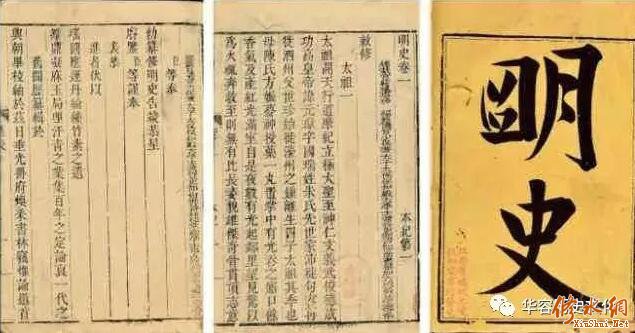 明史
明史卷一 本紀第一
敕修
太祖一
太祖開天行道肇紀立極大聖至神仁文義武俊德成
功高皇帝諱元璋字國瑞姓朱氏先世家沛徙句容再
徙泗州父世珍始徙濠州之鍾離生四子太祖其季也
母陳氏方娠夢神授藥一丸置掌中有光吞之寤口餘
香氣及產紅光滿室自是夜數有光起鄰里望見驚以
為火輒奔救至則無有比長姿貌雄傑奇骨貫頂志意
臣 等奉
敕纂修明史告竣恭呈
臣 等謹奉
表恭
進者伏以
瑤圖應運丹綸繙竹素之遺
鼎凝庥玉局理汗青之業集百年之定論裒一代之
舊聞歷纂輯於
興朝畢校紬於茲日垂光冊府煥采書林竊惟論道首
华容
史文化
修水网
XiuShui.Net